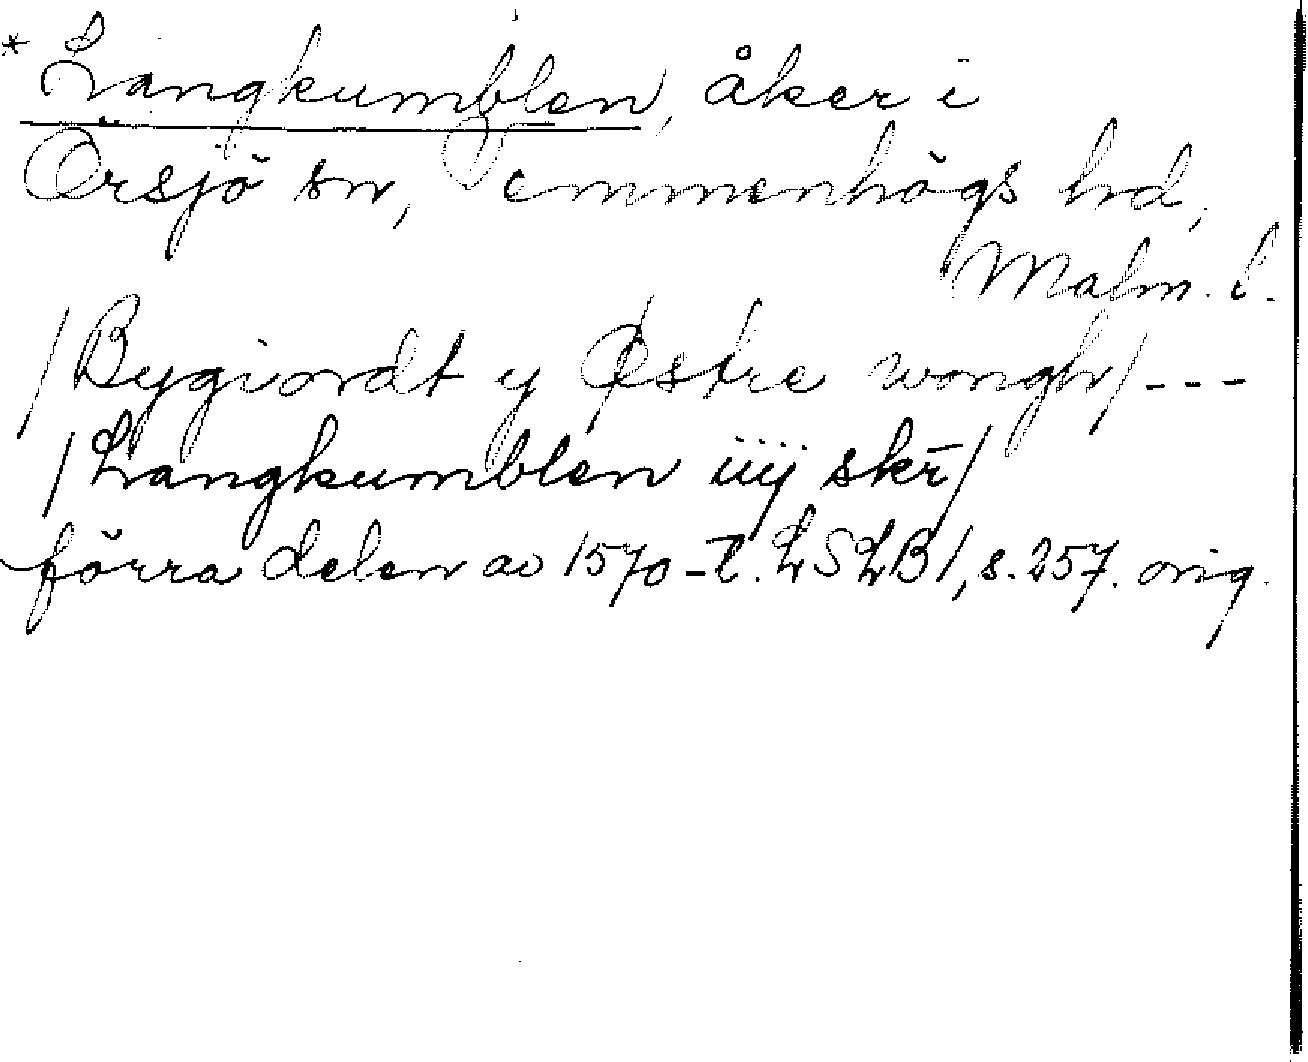 * Langkumblen, åker i
Örsjö sn, Vemmenhögs hd,
Malm. l.
/Bygiordt y Østre wongh/ ---
/Langkumblen iiij skr̄/
förra delen av 1570-t. LSLB 1, s. 257. orig.